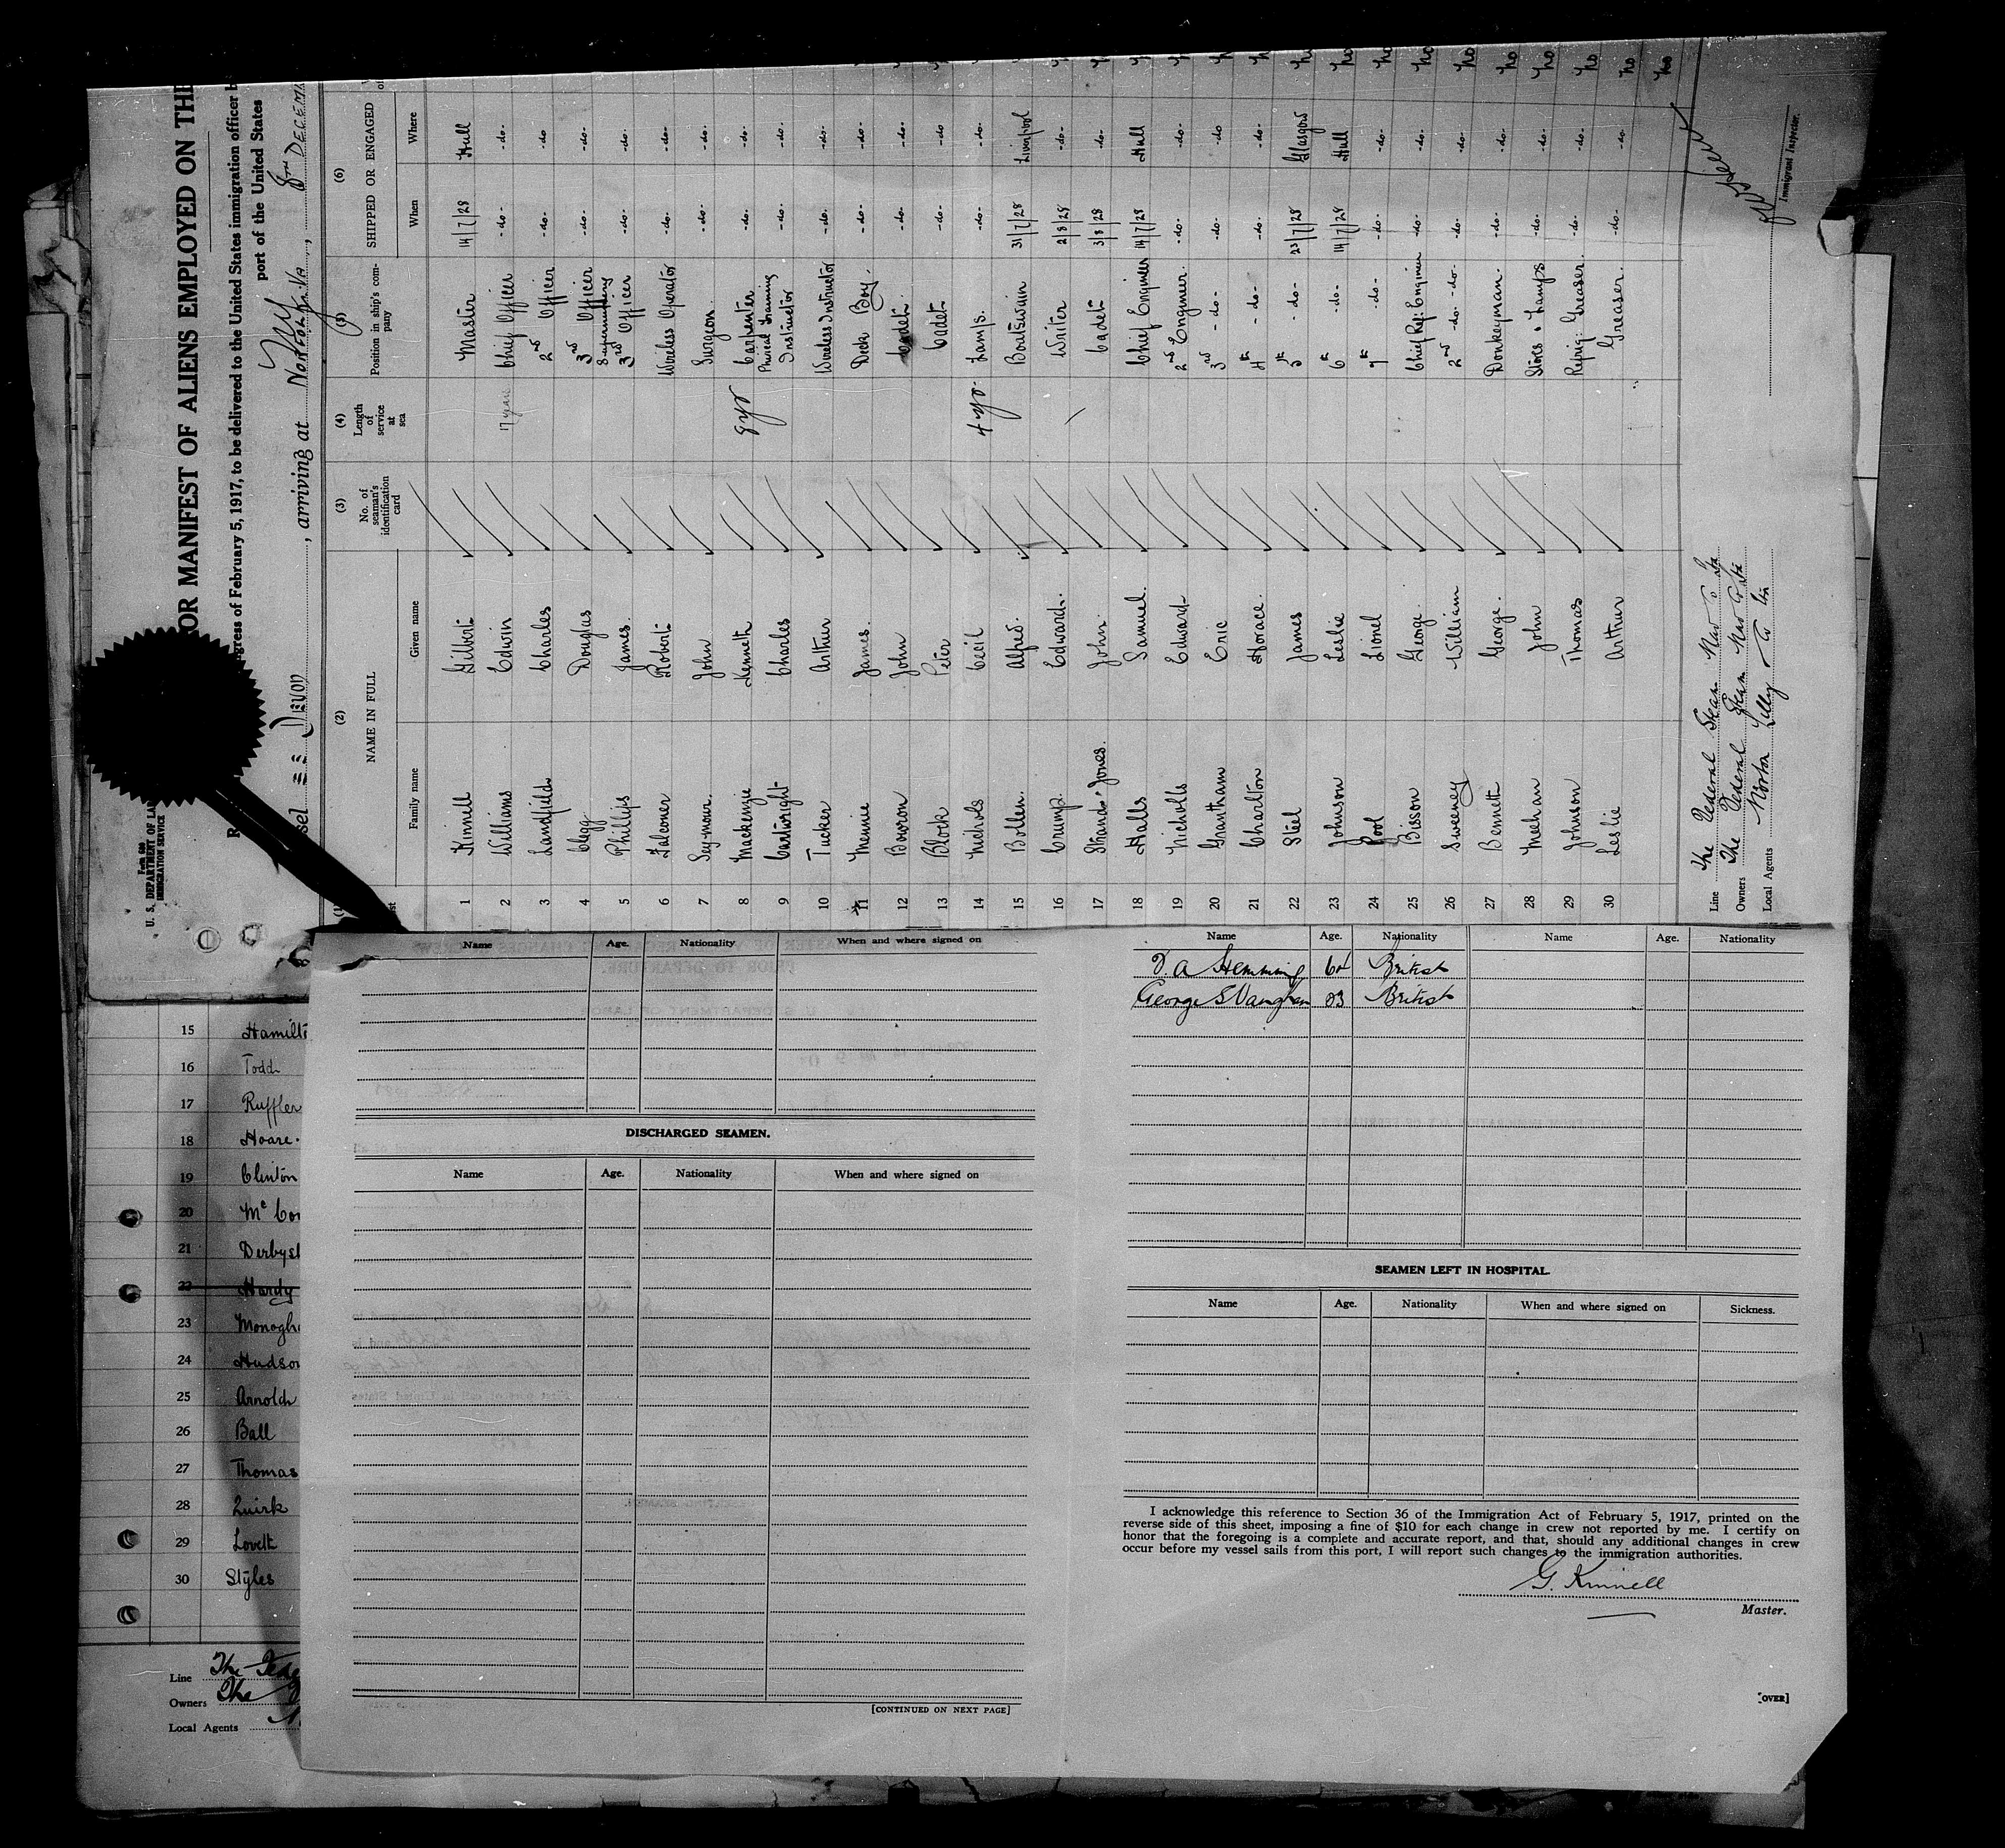 Form 680
U. S. DEPARTMENT OF LA
IMMIGRATION SERVICE
OR MANIFEST OF ALIENS EMPLOYED ON THE
ngress of February 5, 1917, to be delivered to the United States immigration officer b
port of the United States
sel SS Devon, arriving at Norfolk Va, 8th DECEM
(2) (3) (4) (5) (6)
NAME IN FULL No. of seaman's identification card Length of service at sea Position in ship's company SHIPPED OR ENGAGED
Family name Given name When Where
1 Kinnell Gilbert Master 14/7/28 Hull no
2 Williams Edwin 17 years Chief Officer -do- -do-
3 Landfield Charles 2nd Officer -do- -do
4 Clegg Douglas 3rd Officer -do- -do-
5 Phillips James Supernumerary 3rd Officer -do- -do-
6 Falconer Robert Wireless Operator -do- -do-
7 Seymour. John Surgeon. -do- -do-
8 Mackenzie Kenneth 8 yrs Carpenter -do- -do-
9 Cartwright Charles Physical Training Instructor -do- -do-
10 Tucker Arthur Wireless Instructor -do- -do-
11 Mennie James. Deck Boy. -do- -do-
12 Bowron John Cadet. -do- -do-
13 Block Peter Cadet -do- -do
14 Nichols Cecil 4 yrs. Lamps. -do- -do-
15 Bollen. Alfred. Boatswain 31/7/28 Liverpool
16 Crump. Edward. Writer 2/8/28 -do-
17 Strand-Jones. John. Cadet 3/8/28 -do-
18 Halls Samuel. Chief Engineer 14/7/28 Hull
19 Nicholls Edward 2nd Engineer. -do- -do-
20 Grantham Eric 3rd -do- -do- -do
21 Charlton Horace. 4th -do- -do- -do-
22 Steel James 5th -do- 23/7/28 Glasgow
23 Johnson Leslie 6th -do- 14/7/28 Hull no
24 Pool Lionel 7th -do- -do- -do- no
25 Bisson George. Chief Ref: Engineer -do- -do- no
26 Sweeney William 2nd -do- -do- -do- -do- no
27 Bennett George. Donkeyman. -do- -do- no
28 Meehan John Stores & Lamps -do- -do- no
29 Johnson Thomas Refrig: Greaser. -do- -do- no
30 Leslie Arthur Greaser. -do- -do- no
Line The Federal Steam Nav Co Ltd
Owners The Federal Steam Nav Co Ltd
Local Agents Norton Lilly & Co
Immigrant Inspector.
15 Hamilt
16 Todd
17 Ruffler
18 Hoare.
19 Clinton
20 Mc Co
21 Derbysh
22 Hardy
23 Monogh
24 Hudson
25 Arnold
26 Ball
27 Thomas
28 Quirk
29 Lovett
30 Styles
Line The Fede
Owners The
Local Agents
Name Age. Nationality When and where signed on
DISCHARGED SEAMEN.
Name Age. Nationality When and where signed on
[CONTINUED ON NEXT PAGE]
Name Age. Nationality Name Age. Nationality
D. A Hemming 64 British
George S Vaughan 23 British
SEAMEN LEFT IN HOSPITAL.
Name Age. Nationality When and where signed on Sickness.
I acknowledge this reference to Section 36 of the Immigration Act of February 5, 1917, printed on the
reverse side of this sheet, imposing a fine of $10 for each change in crew not reported by me. I certify on
honor that the foregoing is a complete and accurate report, and that, should any additional changes in crew
occur before my vessel sails from this port, I will report such changes to the immigration authorities.
G. Kinnell
Master.
[OVER]